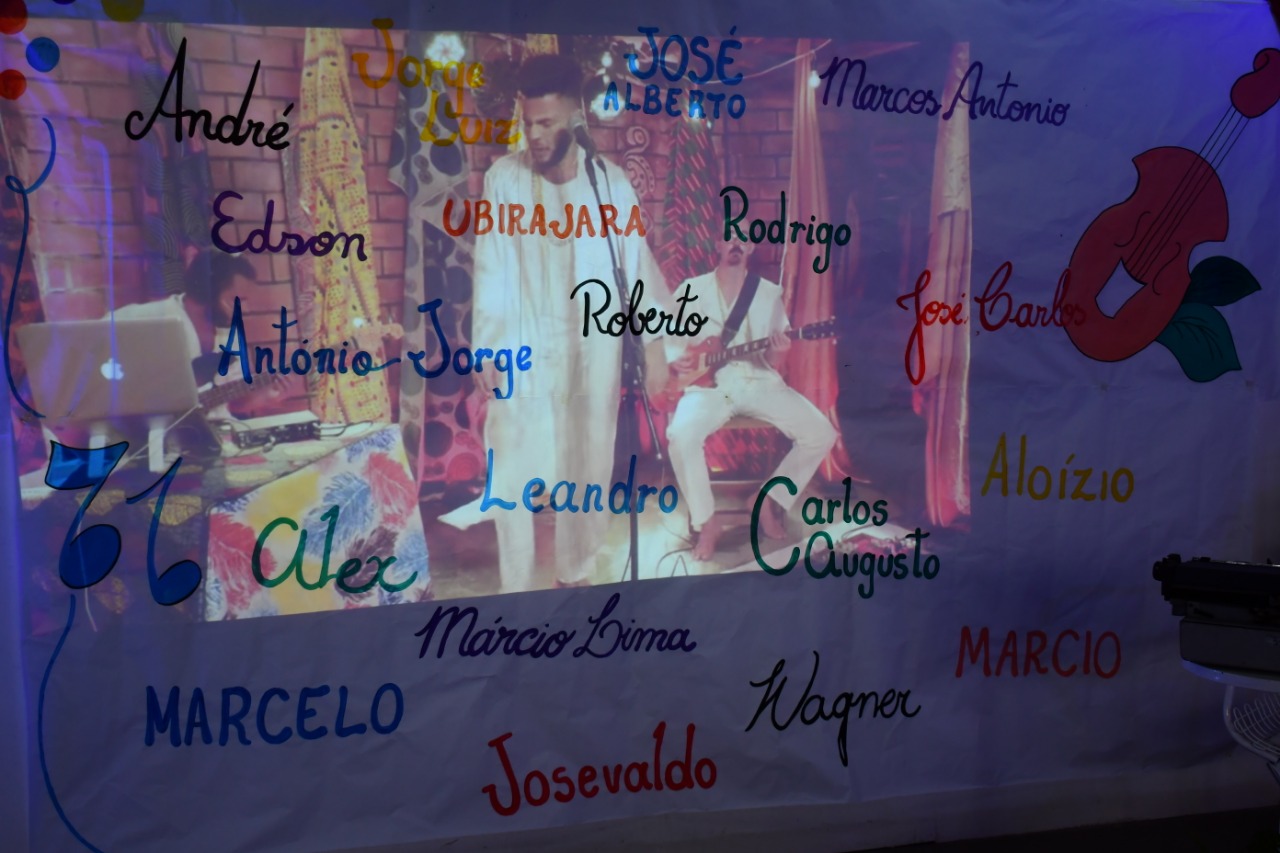 André
Jorge
Luiz
JOSÉ
ALBERTO
Marcos Antonio
Edson
UBIRAJARA
Rodrigo
António Jorge
Roberto
José Carlos
Leandro
Aloízio
Alex
Carlos
Augusto
Márcio Lima
MARCIO
MARCELO
Wagner
Josevaldo